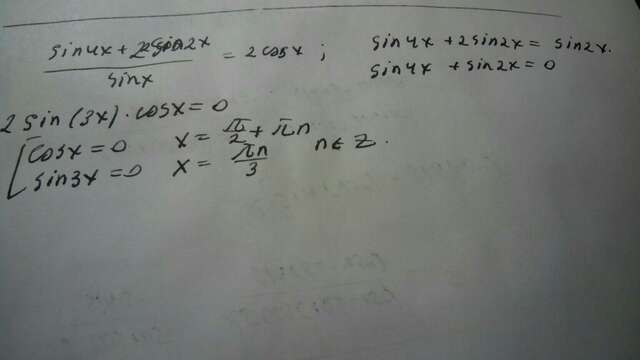 (sin4x + 2sin2x) / sinx = 2cosx ; sin4x + 2sin2x = sin2x.
sin4x + sin2x = 0
2 sin(3x) · cosx = 0
[cosx = 0 x = π/2 + πn
sin3x = 0 x = πn/3 n ∈ Z.